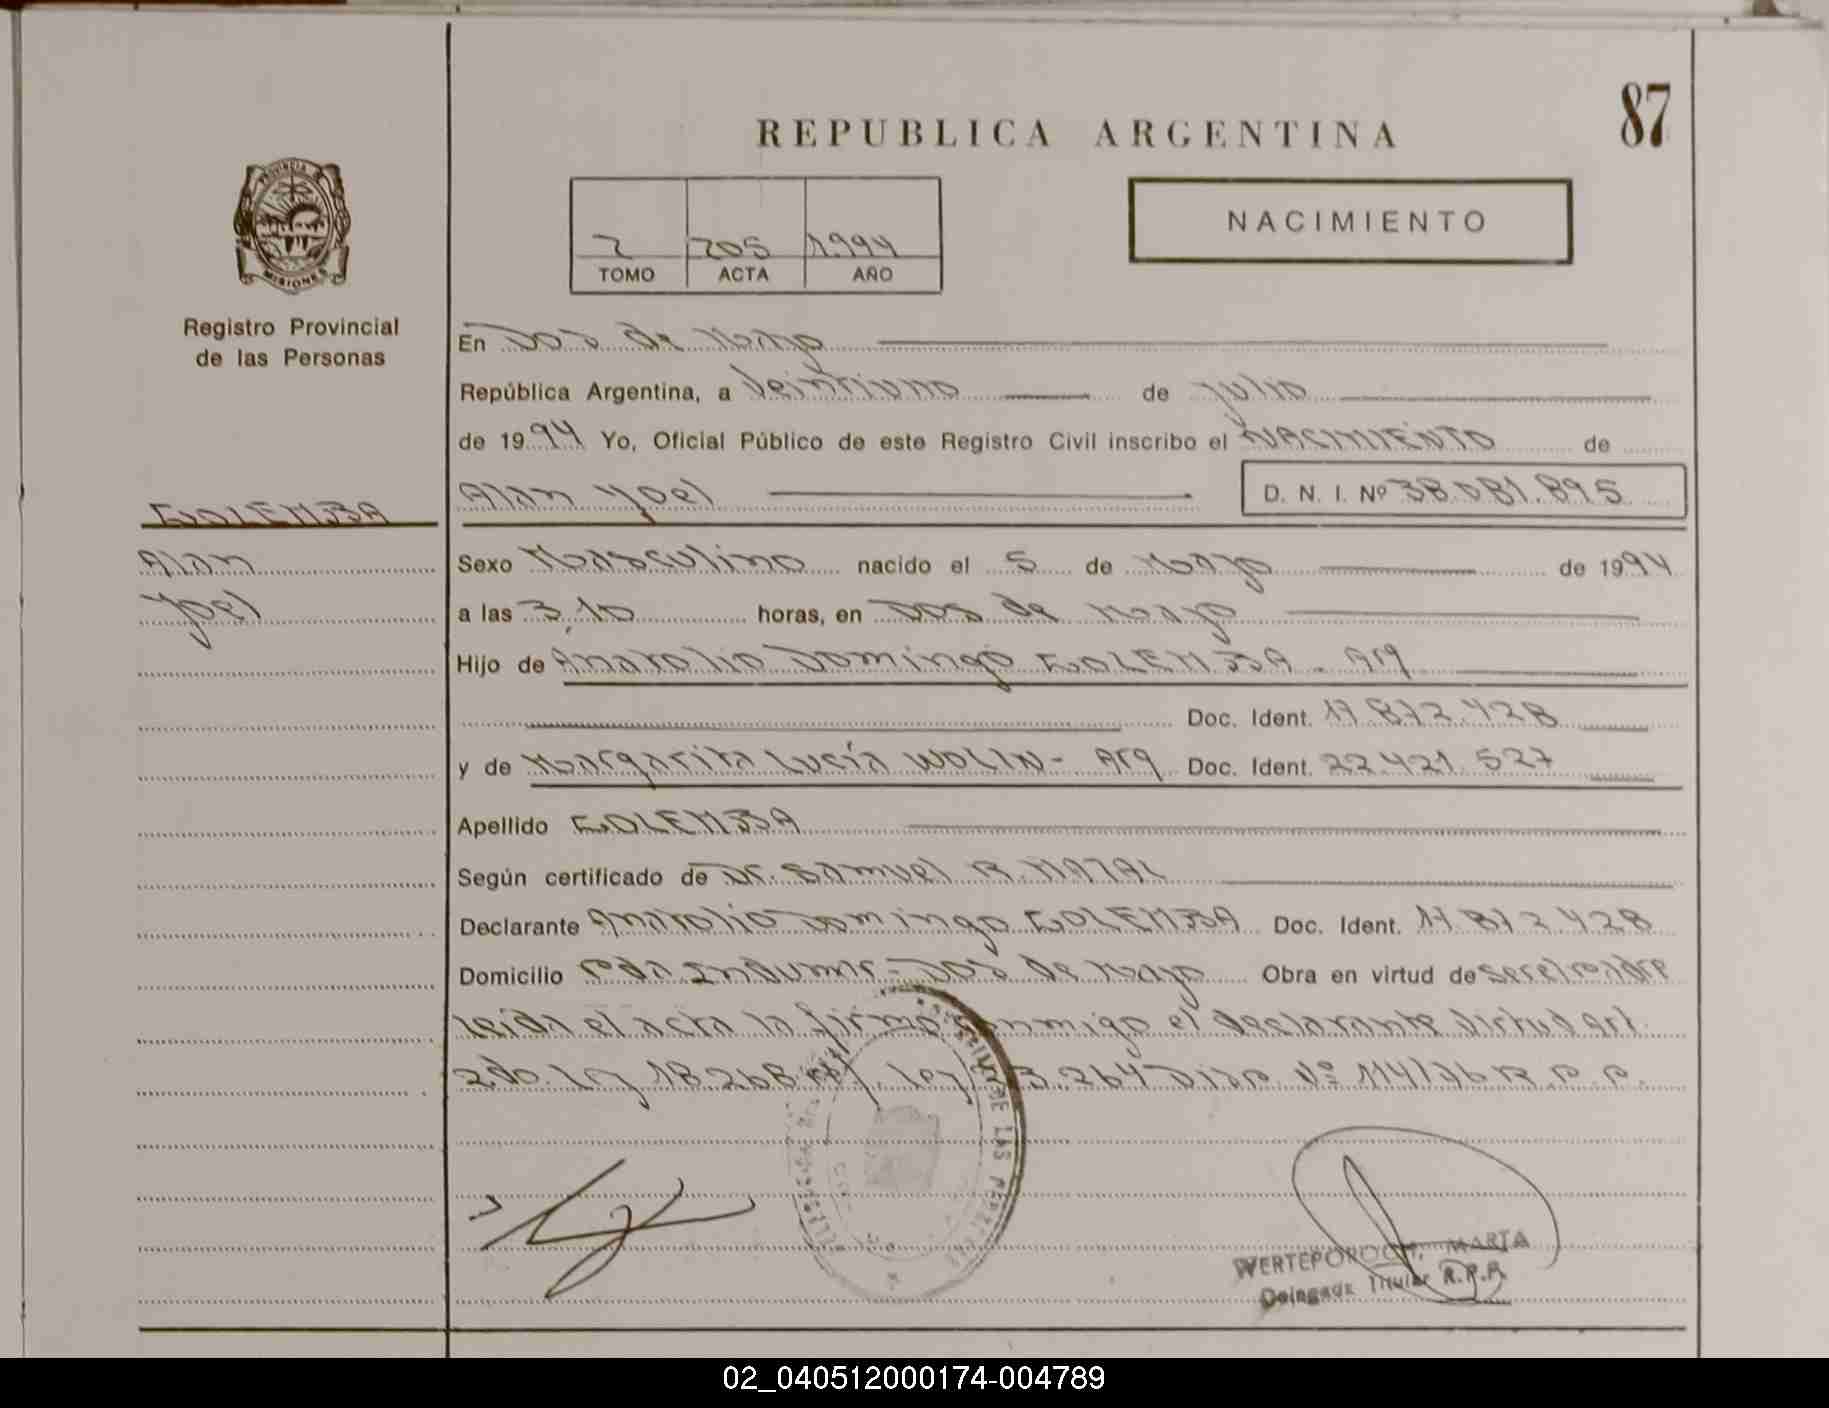 87
REPUBLICA ARGENTINA
NACIMIENTO
2 205 1.994
TOMO ACTA AÑO
PROVINCIA DE
MISIONES
Registro Provincial
de las Personas
En Dos de Mayo
República Argentina, a Veintiuno de julio
de 1994 Yo, Oficial Público de este Registro Civil inscribo el NACIMIENTO de
GOLEMBA
Alan Yoel D. N. I. Nº 38.081.895
Alan
Yoel
Sexo Masculino nacido el 5 de Mayo de 1994
a las 3,10 horas, en Dos de Mayo
Hijo de Anatolio Domingo GOLEMBA - Arg
Doc. Ident. 17.872.428
y de Margarita Lucía WOLIN - Arg Doc. Ident. 22.421.527
Apellido GOLEMBA
Según certificado de Dr. Samuel R.
Declarante Anatolio Domingo GOLEMBA Doc. Ident. 17.872.428
Domicilio Dos de Mayo Obra en virtud de ser el padre
leída el acta la firma conmigo el declarante virtud art.
2do. Ley 18.268 Ley 3.264 Disp. Nº 114/76 R.P.P.
DE LAS PERSONAS
MARTA
Delegada Titular R.P.P.
02_040512000174-004789